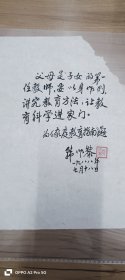 父母是子女的第一
位教师，要以身作则
讲究教育方法，让教
育科学进家门。
为《家庭教育指南》题
韩作黎
一九八八年
七月十八日